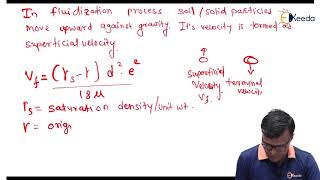 In fluidization process soil/solid particles
Ekeeda
move upward against gravity. It's velocity is termed as
superficial velocity.
Vf = (rs - r) d² · e²
18μ
Superficial velocity Vf
terminal velocity
rs = saturation density/unit wt.
r = orig